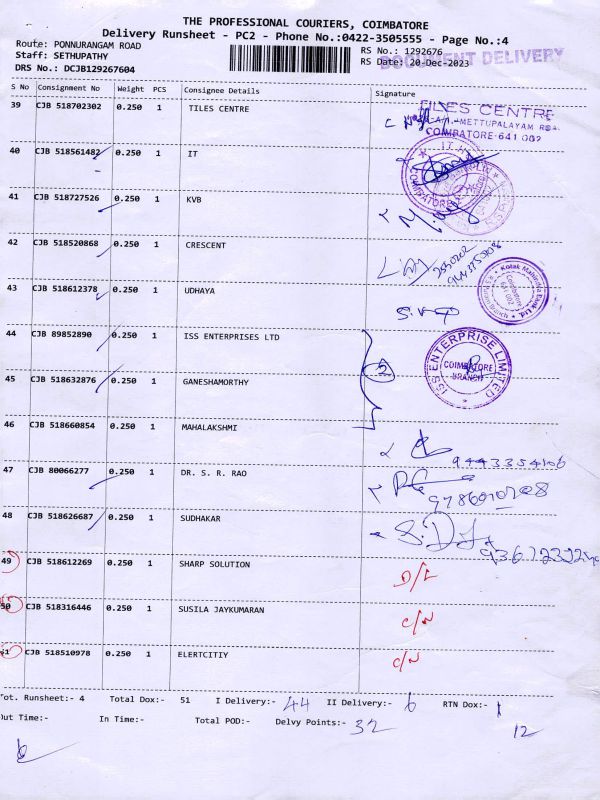 THE PROFESSIONAL COURIERS, COIMBATORE
Delivery Runsheet - PC2 - Phone No.:0422-3505555 - Page No.:4
Route: PONNURANGAM ROAD
Staff: SETHUPATHY
DRS No.: DCJB129267604
RS No.: 1292676
RS Date: 20-Dec-2023
DOCUMENT DELIVERY
S No Consignment No Weight PCS Consignee Details Signature
39 CJB 518702302 0.250 1 TILES CENTRE
TILES CENTRE
METTUPALAYAM ROA
COIMBATORE-641 002
40 CJB 518561482 0.250 1 IT
41 CJB 518727526 0.250 1 KVB
42 CJB 518520868 0.250 1 CRESCENT
43 CJB 518612378 0.250 1 UDHAYA
Kotak Mahindra Bank Ltd
Coimbatore
641 002
44 CJB 89852890 0.250 1 ISS ENTERPRISES LTD
ISS ENTERPRISE LIMITED
COIMBATORE
BRANCH
45 CJB 518632876 0.250 1 GANESHAMORTHY
46 CJB 518660854 0.250 1 MAHALAKSHMI
9443354106
47 CJB 80066277 0.250 1 DR. S. R. RAO
48 CJB 518626687 0.250 1 SUDHAKAR
49 CJB 518612269 0.250 1 SHARP SOLUTION D/L
50 CJB 518316446 0.250 1 SUSILA JAYKUMARAN C/N
51 CJB 518510978 0.250 1 ELERTCITIY C/N
Tot. Runsheet:- 4 Total Dox:- 51 I Delivery:- 44 II Delivery:- 6 RTN Dox:- 1
Out Time:- In Time:- Total POD:- Delvy Points:- 32
12